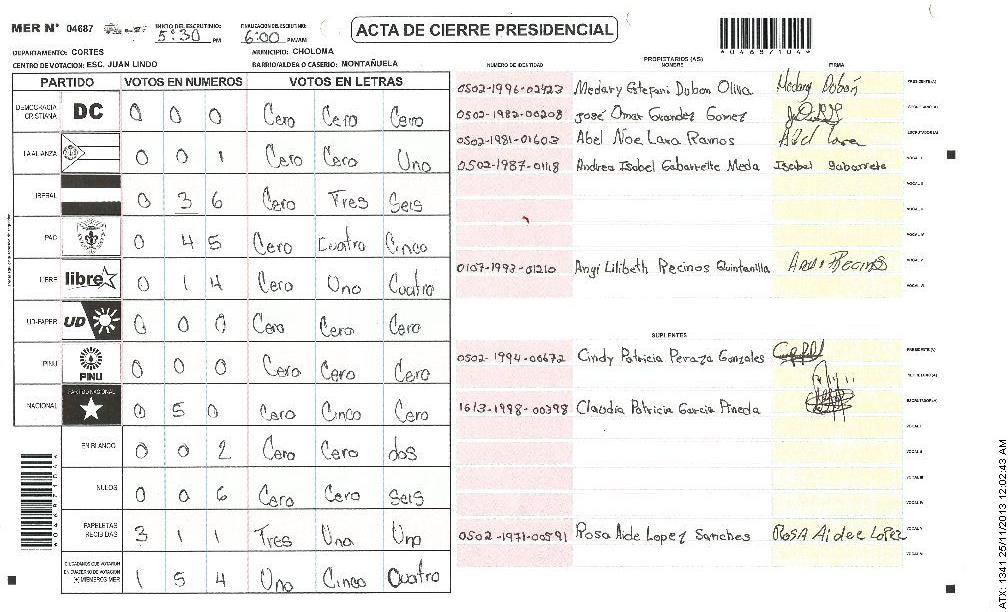 MER N° 04687 INICIO DEL ESCRUTINIO: 5:30 PM FINALIZACION DEL ESCRUTINIO: 6:00 PM/AM
ACTA DE CIERRE PRESIDENCIAL
*04687104*
DEPARTAMENTO: CORTES MUNICIPIO: CHOLOMA
CENTRO DE VOTACION: ESC. JUAN LINDO BARRIO/ALDEA O CASERIO: MONTAÑUELA
PARTIDO VOTOS EN NUMEROS VOTOS EN LETRAS
DEMOCRACIA CRISTIANA DC 0 0 0 Cero Cero Cero
LA ALIANZA 0 0 1 Cero Cero Uno
LIBERAL 0 3 6 Cero Tres Seis
PAC 0 4 5 Cero Cuatro Cinco
LIBRE libre 0 1 4 Cero Uno Cuatro
UD-FAPER UD 0 0 0 Cero Cero Cero
PINU PINU 0 0 0 Cero Cero Cero
NACIONAL PARTIDO NACIONAL 0 5 0 Cero Cinco Cero
EN BLANCO 0 0 2 Cero Cero dos
NULOS 0 0 6 Cero Cero seis
PAPELETAS RECIBIDAS 3 1 1 Tres Uno Uno
CIUDADANOS QUE VOTARON EN CUADERNO DE VOTACION (+) MIEMBROS MER 1 5 4 Uno Cinco Cuatro
PROPIETARIOS (AS)
NUMERO DE IDENTIDAD NOMBRE FIRMA
0502-1996-02423 Medary Estefani Dubon Oliva Medary Dubón PRESIDENTE(A)
0502-1982-00208 José Omar Grandez Gomez
0502-1981-01603 Abel Noe Lara Ramos Abel Lara ESCRUTADOR(A)
0502-1987-01118 Andrea Isabel Gabarrette Meda Isabel Gabarrete VOCAL I
VOCAL II
VOCAL III
VOCAL IV
0107-1993-01210 Angi Lilibeth Recinos Quintanilla Angi Recinos VOCAL V
VOCAL VI
SUPLENTES
0502-1994-00672 Cindy Patricia Peraza Gonzales PRESIDENTE(A)
SECRETARIO(A)
1613-1998-00398 Claudia Patricia Garcia Pineda ESCRUTADOR(A)
VOCAL I
VOCAL II
VOCAL III
VOCAL IV
0502-1971-00591 Rosa Aide Lopez Sanches ROSA Aidee LOPEZ VOCAL V
VOCAL VI
ATX: 1341 25/11/2013 12:02:43 AM